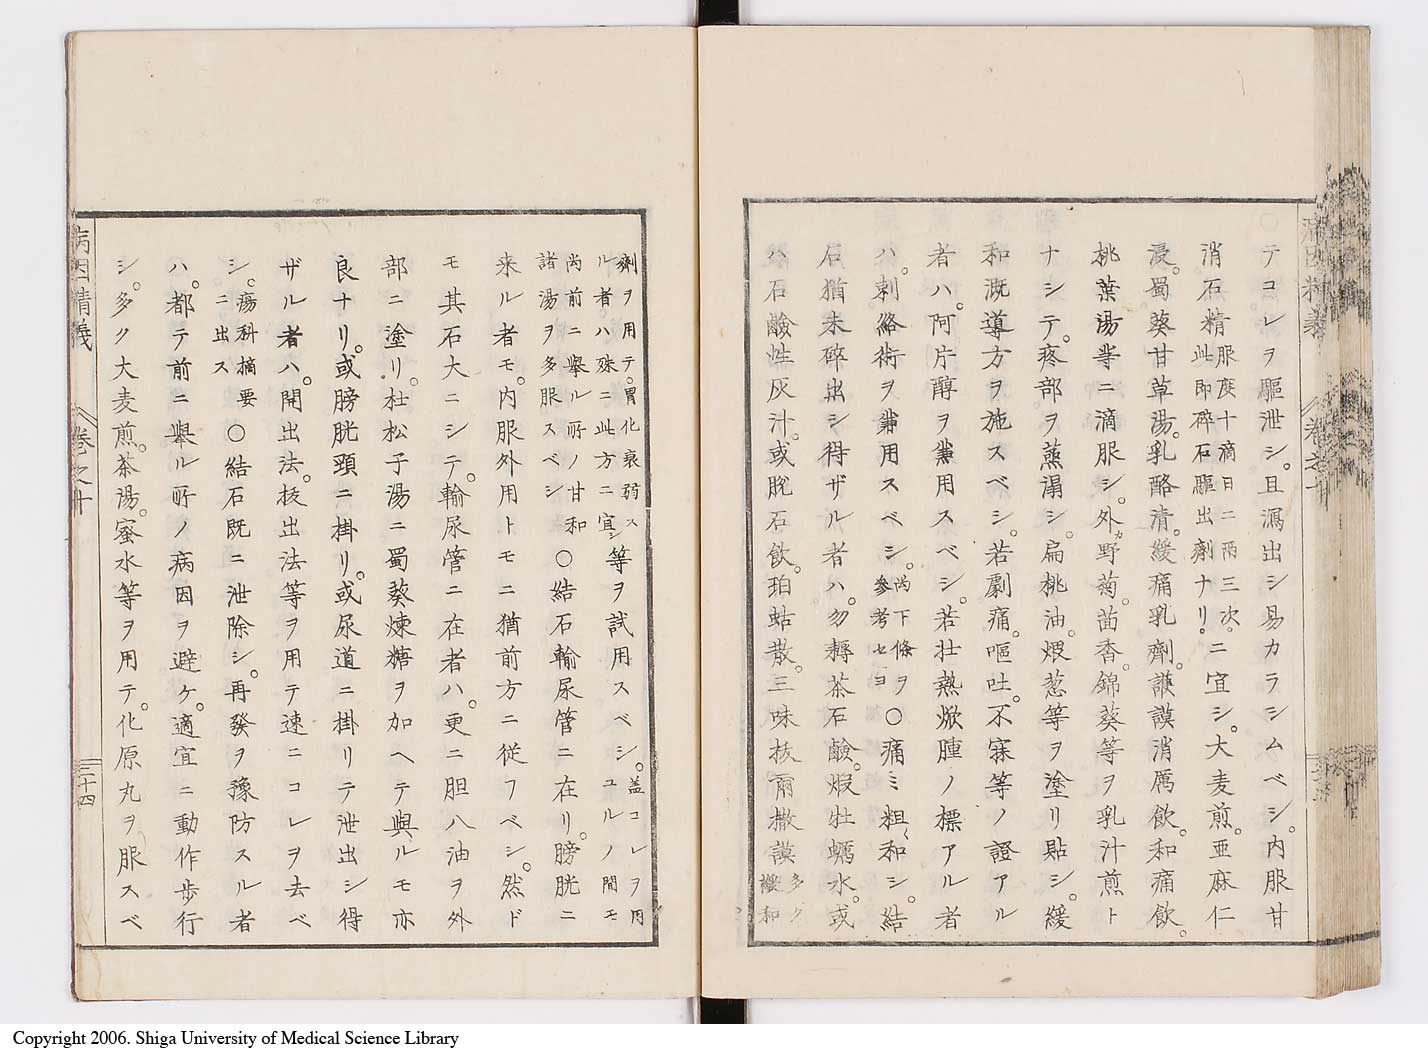 テコレヲ驅泄シ。且漏出シ易カラシムベシ。内服甘
消石精服度十滴日ニ兩三次。此即碎石驅出劑ナリ。ニ宜シ。大麦煎。亜麻仁
浸。蜀葵甘草湯。乳酪清。緩痛乳劑。護謨消厲飲。和痛飲。
桃葉湯等ニ滴服シ。外カ野菊。茴香。錦葵等ヲ乳汁煎ト
ナシテ。疼部ヲ蒸溻シ。扁桃油。煨葱等ヲ塗リ貼シ。緩
和漑導方ヲ施スベシ。若劇痛。嘔吐。不寐等ノ證アル
者ハ。阿片醇ヲ兼用スベシ。若壮熱焮腫ノ標アル者
ハ。刺絡術ヲ兼用スベシ。尚下條ヲ参考セヨ○痛ミ粗和シ。結
石猶未碎出シ得ザル者ハ。勿耨茶石鹸。煆牡蠣水。或
ハ石鹸性灰汁。或脘石飲。珀蛄散。三味抜爾撒謨多ク緩和
劑ヲ用テ。胃化衰弱スル者ハ殊ニ此方ニ宜シ等ヲ試用スベシ。蓋コレヲ用ユルノ間モ
尚前ニ擧ル所ノ甘和諸湯ヲ多服スベシ○結石輸尿管ニ在リ。膀胱ニ
来ル者モ。内服外用トモニ猶前方ニ従フベシ。然ド
モ其石大ニシテ。輸尿管ニ在者ハ。更ニ胆八油ヲ外
部ニ塗リ。杜松子湯ニ蜀葵煉糖ヲ加ヘテ與ルモ亦
良ナリ。或膀胱頸ニ掛リ。或尿道ニ掛リテ泄出シ得
ザル者ハ。開出法。抜出法等ヲ用テ速ニコレヲ去ベ
シ。瘍科摘要ニ出ス○結石既ニ泄除シ。再發ヲ豫防スル者
ハ。都テ前ニ擧ル所ノ病因ヲ避ケ。適宜ニ動作歩行
シ。多ク大麦煎。茶湯。蜜水等ヲ用テ。化原丸ヲ服スベ
病因精義 巻之十 三十四
Copyright 2006. Shiga University of Medical Science Library